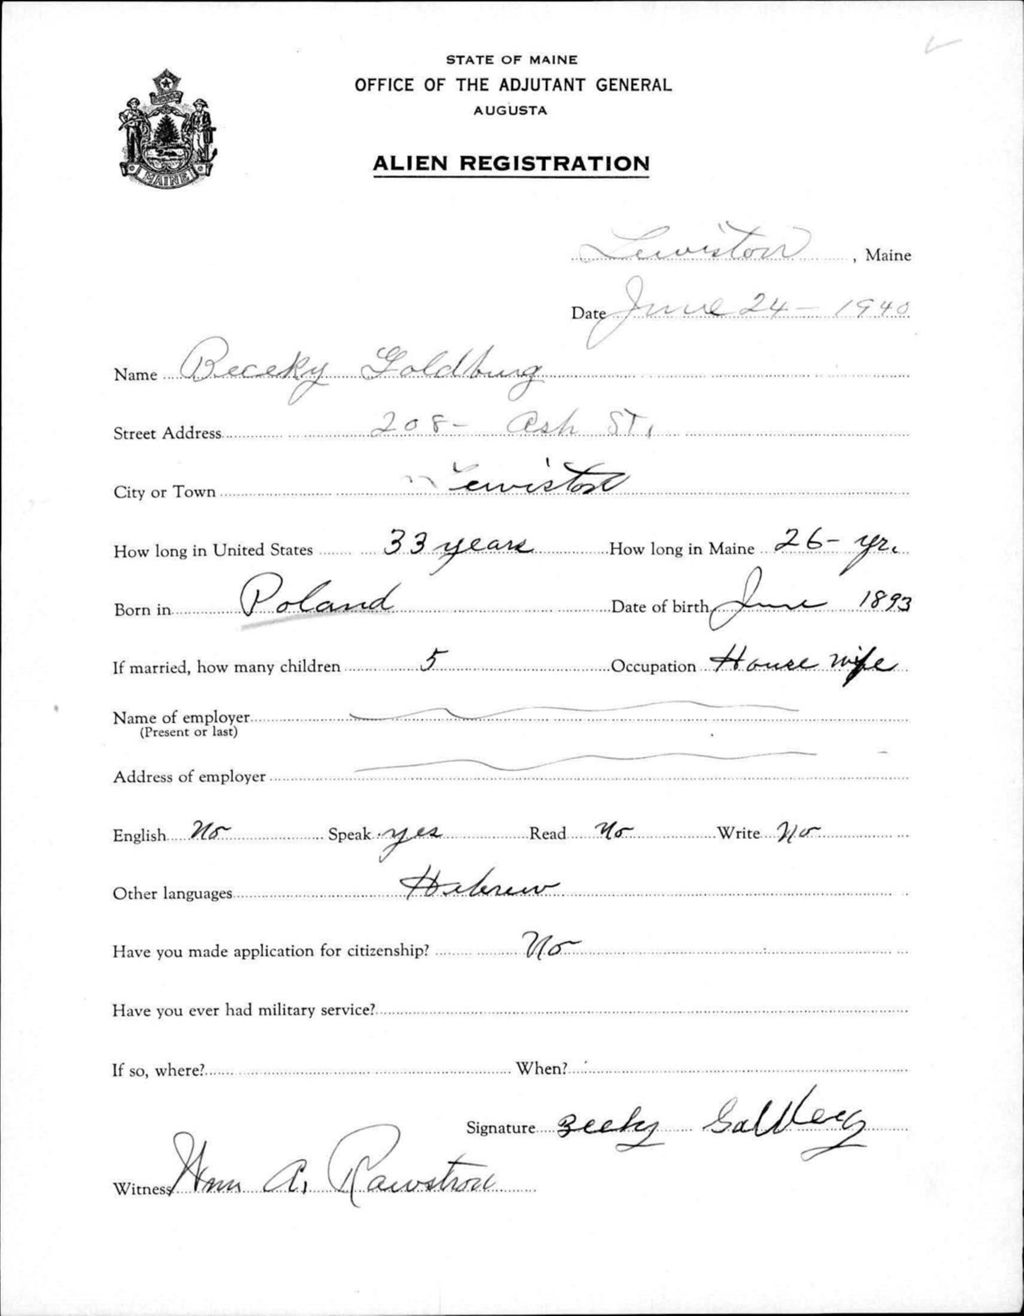 STATE OF MAINE
OFFICE OF THE ADJUTANT GENERAL
AUGUSTA
ALIEN REGISTRATION
MAINE
Lewiston, Maine
Date June 24 - 1940
Name Beceky Goldburg
Street Address 208- Ash ST.
City or Town Lewiston
How long in United States 33 years How long in Maine 26- yr.
Born in Poland Date of birth June 1893
If married, how many children 5 Occupation House wife
Name of employer
(Present or last)
Address of employer
English No Speak yes Read No Write No
Other languages Hebrew
Have you made application for citizenship? No
Have you ever had military service?
If so, where? When?
Signature
Witness Wm A. Rawstron